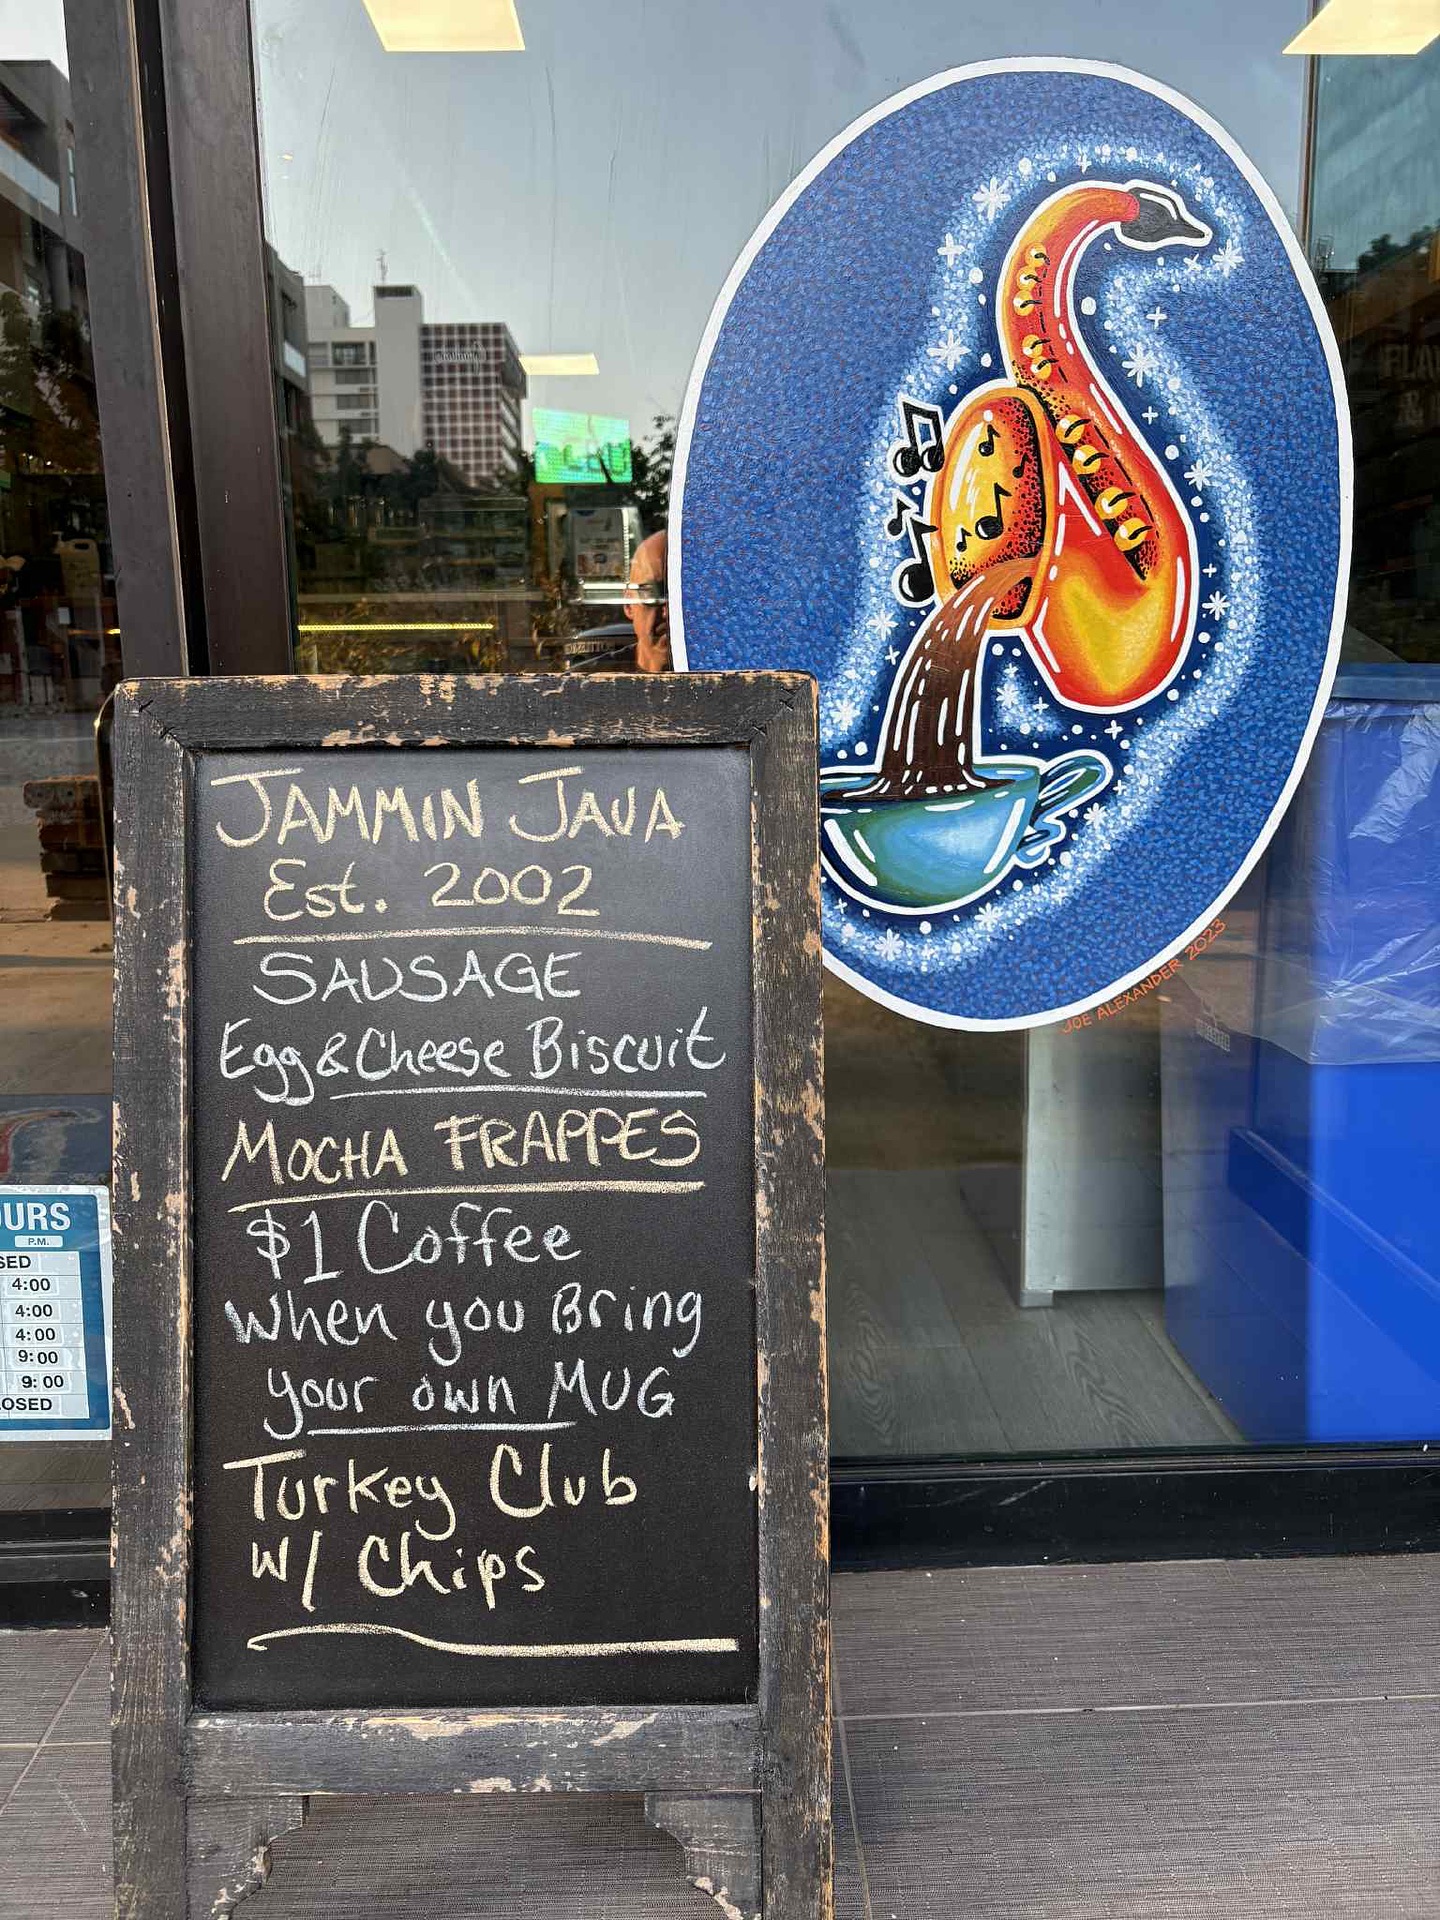 JAMMIN JAVA
Est. 2002
SAUSAGE
Egg & Cheese Biscuit
MOCHA FRAPPES
$1 Coffee
when you Bring
your own MUG
Turkey Club
W/ Chips
JOE ALEXANDER 2023
OURS
P.M.
SED
4:00
4:00
4:00
9:00
9:00
LOSED